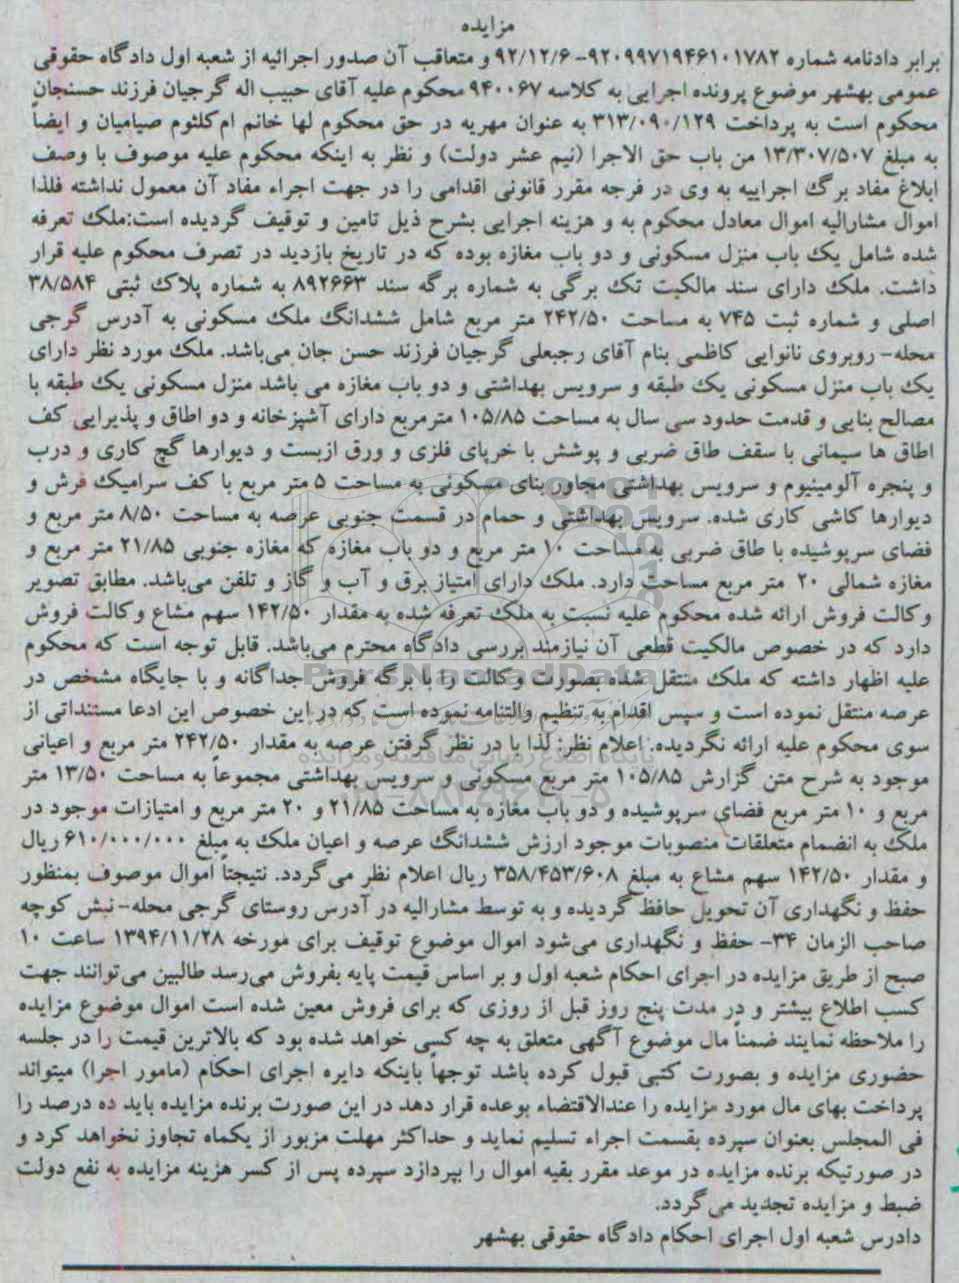 مزایده
برابر دادنامه شماره ۹۲۰۹۹۷۱۹۴۶۱۰۱۷۸۲-۹۲/۱۲/۶ و متعاقب آن صدور اجرائیه از شعبه اول دادگاه حقوقی
عمومی بهشهر موضوع پرونده اجرایی به کلاسه ۹۴۰۰۶۷ محکوم علیه آقای حبیب اله گرجیان فرزند حسنجان
محکوم است به پرداخت ۳۱۳/۰۹۰/۱۲۹ به عنوان مهریه در حق محکوم لها خانم ام کلثوم صیامیان و ایضاً
به مبلغ ۱۳/۳۰۷/۵۰۷ من باب حق الاجرا (نیم عشر دولت) و نظر به اینکه محکوم علیه موصوف با وصف
ابلاغ مفاد برگ اجراییه به وی در فرجه مقرر قانونی اقدامی را در جهت اجراء مفاد آن معمول نداشته فلذا
اموال مشارالیه اموال معادل محکوم به و هزینه اجرایی بشرح ذیل تامین و توقیف گردیده است:ملک تعرفه
شده شامل یک باب منزل مسکونی و دو باب مغازه بوده که در تاریخ بازدید در تصرف محکوم علیه قرار
داشت. ملک دارای سند مالکیت تک برگی به شماره برگه سند ۸۹۲۶۶۳ به شماره پلاک ثبتی ۳۸/۵۸۴
اصلی و شماره ثبت ۷۴۵ به مساحت ۲۴۲/۵۰ متر مربع شامل ششدانگ ملک مسکونی به آدرس گرجی
محله- روبروی نانوایی کاظمی بنام آقای رجبعلی گرجیان فرزند حسن جان می‌باشد. ملک مورد نظر دارای
یک باب منزل مسکونی یک طبقه و سرویس بهداشتی و دو باب مغازه می باشد منزل مسکونی یک طبقه با
مصالح بنایی و قدمت حدود سی سال به مساحت ۱۰۵/۸۵ مترمربع دارای آشپزخانه و دو اطاق و پذیرایی کف
اطاق ها سیمانی با سقف طاق ضربی و پوشش با خرپای فلزی و ورق ازبست و دیوارها گچ کاری و درب
و پنجره آلومینیوم و سرویس بهداشتی مجاور بنای مسکونی به مساحت ۵ متر مربع با کف سرامیک فرش و
دیوارها کاشی کاری شده. سرویس بهداشتی و حمام در قسمت جنوبی عرصه به مساحت ۸/۵۰ متر مربع و
فضای سرپوشیده با طاق ضربی به مساحت ۱۰ متر مربع و دو باب مغازه که مغازه جنوبی ۲۱/۸۵ متر مربع و
مغازه شمالی ۲۰ متر مربع مساحت دارد. ملک دارای امتیاز برق و آب و گاز و تلفن می‌باشد. مطابق تصویر
وکالت فروش ارائه شده محکوم علیه نسبت به ملک تعرفه شده به مقدار ۱۴۲/۵۰ سهم مشاع وکالت فروش
دارد که در خصوص مالکیت قطعی آن نیازمند بررسی دادگاه محترم می‌باشد. قابل توجه است که محکوم
علیه اظهار داشته که ملک منتقل شده بصورت وکالت را با برگه فروش جداگانه و با جایگاه مشخص در
عرصه منتقل نموده است و سپس اقدام به تنظیم والتنامه نموده است که در این خصوص این ادعا مستنداتی از
سوی محکوم علیه ارائه نگردیده. اعلام نظر: لذا با در نظر گرفتن عرصه به مقدار ۲۴۲/۵۰ متر مربع و اعیانی
موجود به شرح متن گزارش ۱۰۵/۸۵ متر مربع مسکونی و سرویس بهداشتی مجموعاً به مساحت ۱۳/۵۰ متر
مربع و ۱۰ متر مربع فضای سرپوشیده و دو باب مغازه به مساحت ۲۱/۸۵ و ۲۰ متر مربع و امتیازات موجود در
ملک به انضمام متعلقات منصوبات موجود ارزش ششدانگ عرصه و اعیان ملک به مبلغ ۶۱۰/۰۰۰/۰۰۰ ریال
و مقدار ۱۴۲/۵۰ سهم مشاع به مبلغ ۳۵۸/۴۵۳/۶۰۸ ریال اعلام نظر می گردد. نتیجتاً اموال موصوف بمنظور
حفظ و نگهداری آن تحویل حافظ گردیده و به توسط مشارالیه در آدرس روستای گرجی محله- نبش کوچه
صاحب الزمان ۳۴- حفظ و نگهداری می‌شود اموال موضوع توقیف برای مورخه ۱۳۹۴/۱۱/۲۸ ساعت ۱۰
صبح از طریق مزایده در اجرای احکام شعبه اول و بر اساس قیمت پایه بفروش می‌رسد طالبین می‌توانند جهت
کسب اطلاع بیشتر و در مدت پنج روز قبل از روزی که برای فروش معین شده است اموال موضوع مزایده
را ملاحظه نمایند ضمناً مال موضوع آگهی متعلق به چه کسی خواهد شده بود که بالاترین قیمت را در جلسه
حضوری مزایده و بصورت کتبی قبول کرده باشد توجهاً باینکه دایره اجرای احکام (مامور اجرا) میتواند
پرداخت بهای مال مورد مزایده را عندالاقتضاء بوعده قرار دهد در این صورت برنده مزایده باید ده درصد را
فی المجلس بعنوان سپرده بقسمت اجراء تسلیم نماید و حداکثر مهلت مزبور از یکماه تجاوز نخواهد کرد و
در صورتیکه برنده مزایده در موعد مقرر بقیه اموال را بپردازد سپرده پس از کسر هزینه مزایده به نفع دولت
ضبط و مزایده تجدید می گردد.
دادرس شعبه اول اجرای احکام دادگاه حقوقی بهشهر
ParsNamadData
پایگاه اطلاع رسانی مناقصه و مزایده